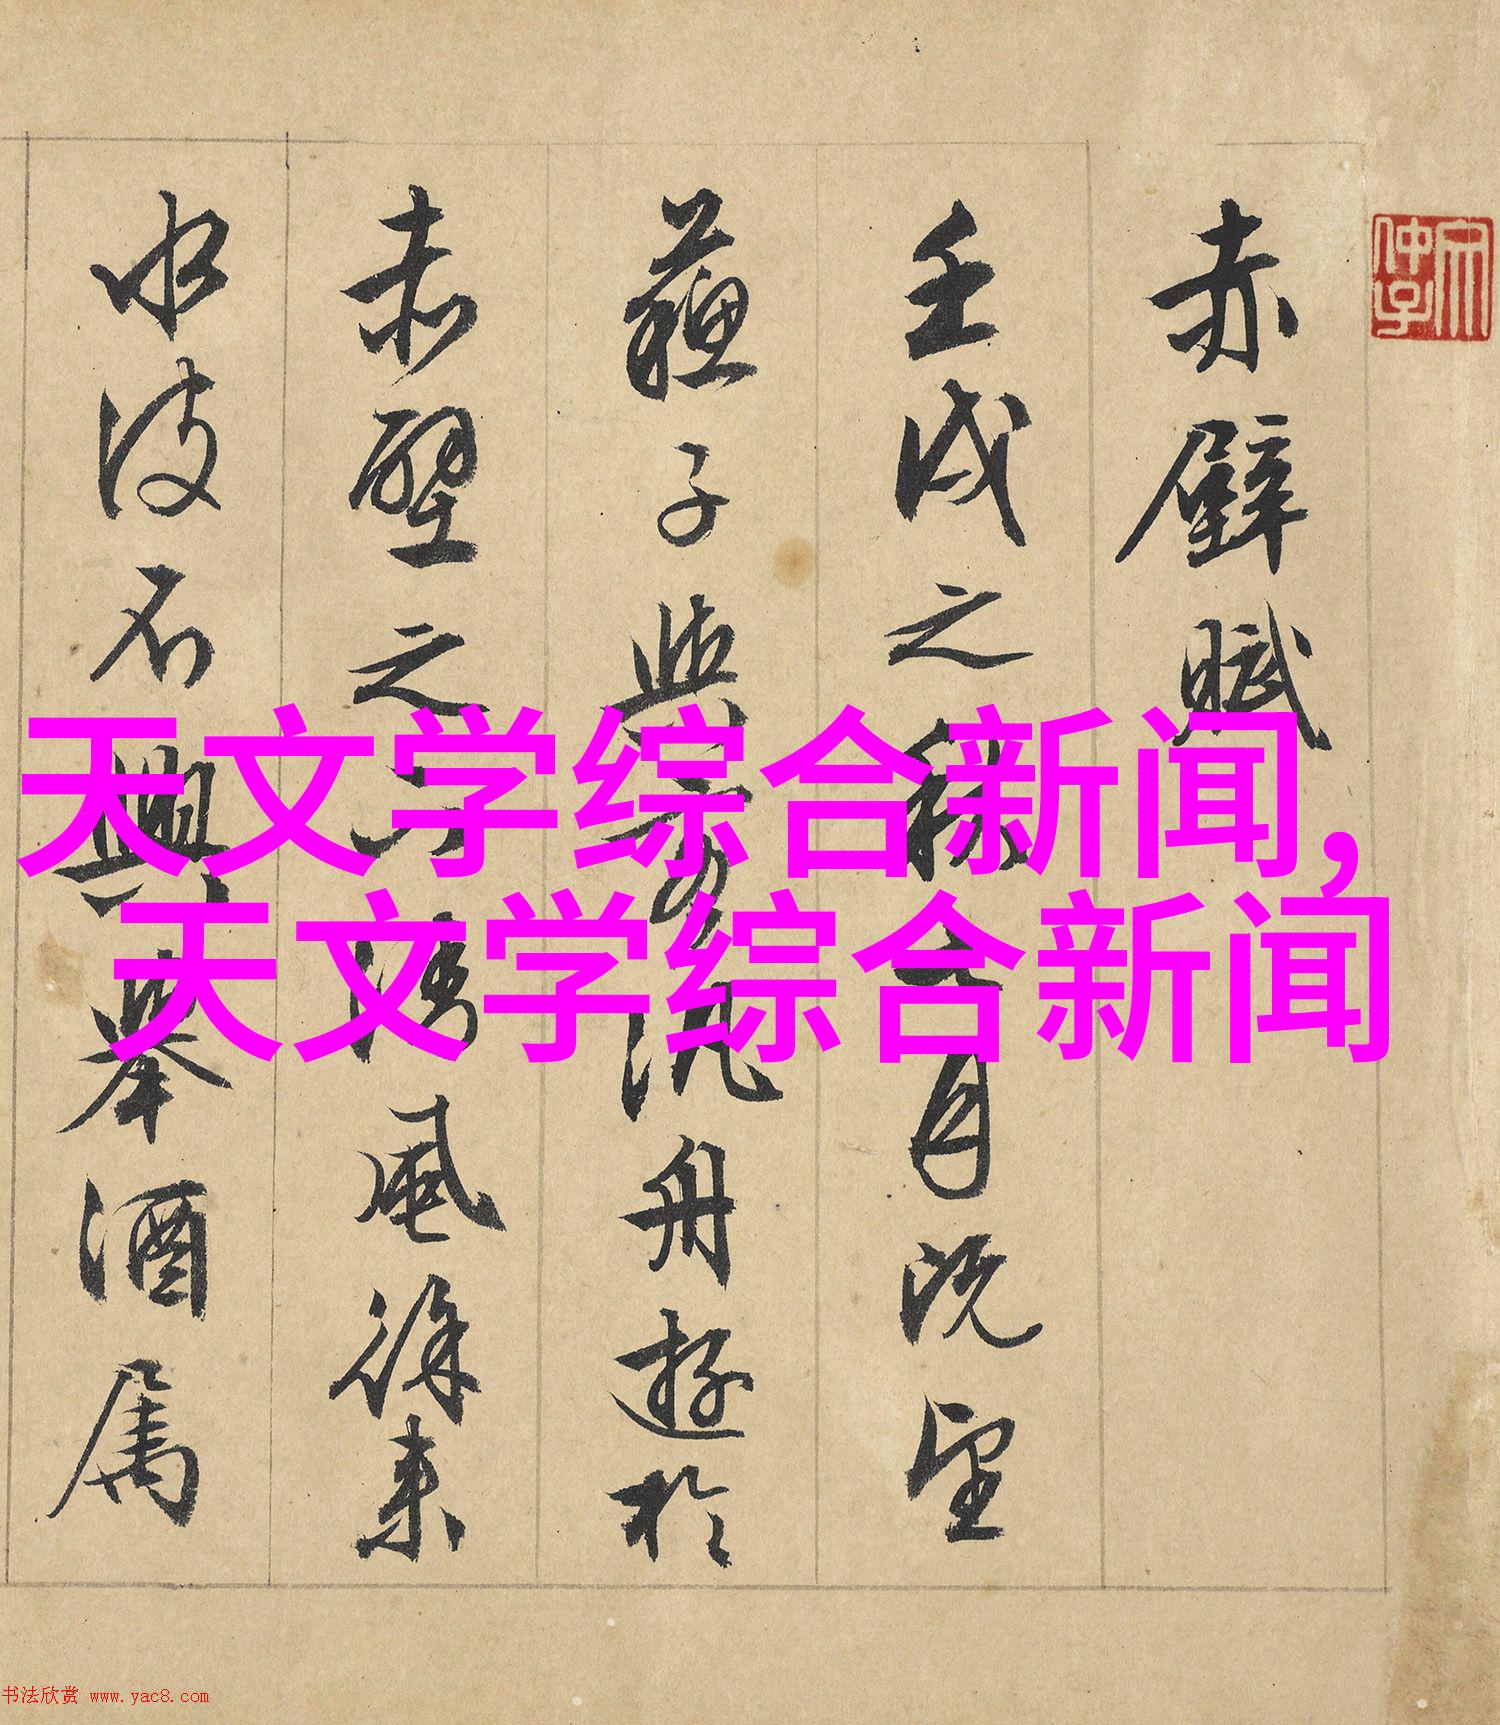 赤壁賦
壬戌之秋七月既望
蘇子與客汎舟遊於
赤壁之下清風徐來
水波不興舉酒屬
天文学综合新闻,
天文学综合新闻
书法欣赏 www.yac8.com